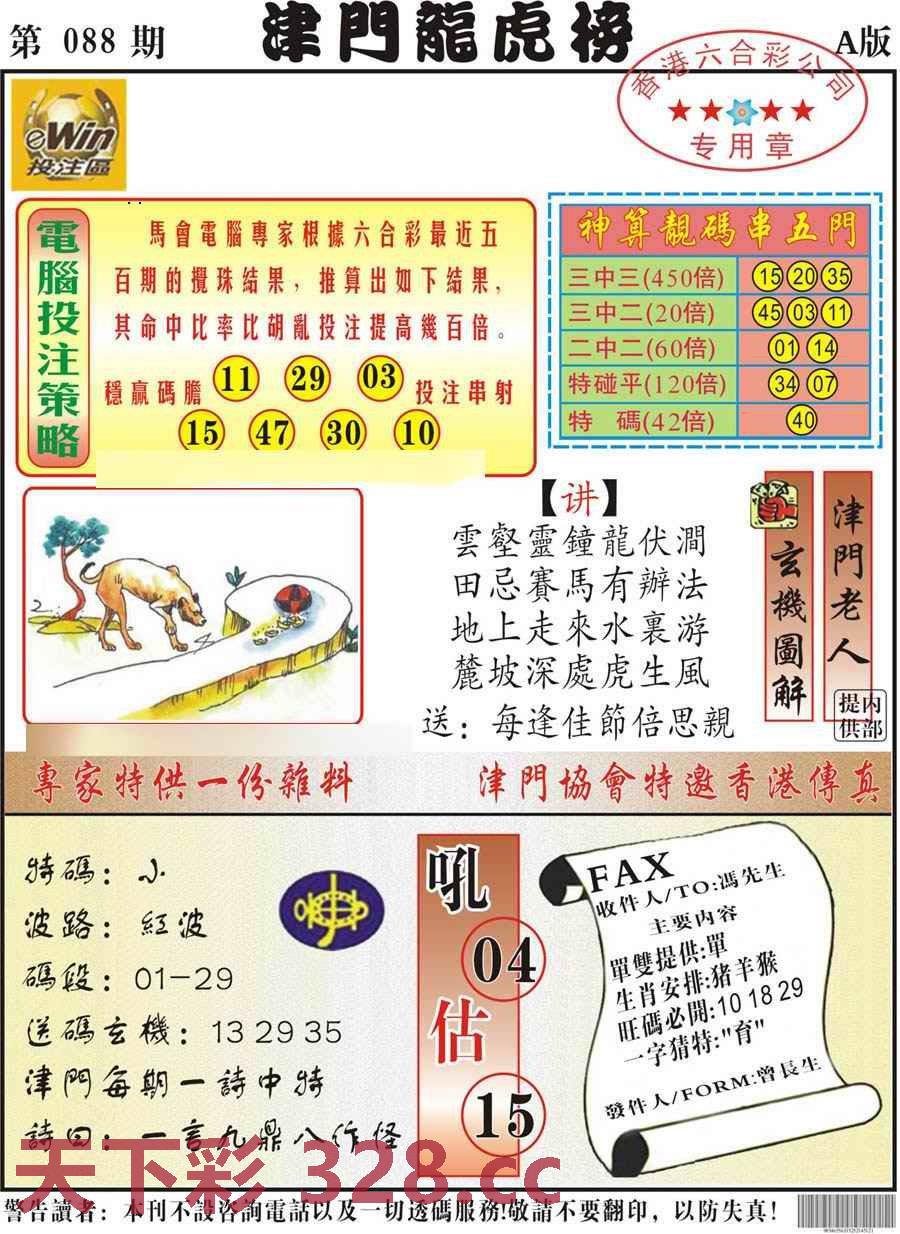 第 088 期
津門龍虎榜
A版
香港六合彩公司
★★★★
专用章
eWin
投注區
電腦投注策略
馬會電腦專家根據六合彩最近五
百期的攪珠結果，推算出如下結果，
其命中比率比胡亂投注提高幾百倍。
穩贏碼膽 11 29 03 投注串射
15 47 30 10
神算靚碼串五門
三中三(450倍) 15 20 35
三中二(20倍) 45 03 11
二中二(60倍) 01 14
特碰平(120倍) 34 07
特 碼(42倍) 40
【讲】
雲壑靈鐘龍伏澗
田忌賽馬有辦法
地上走來水裏游
麓坡深處虎生風
送：每逢佳節倍思親
玄機圖解
津門老人
内部提供
專家特供一份雜料
津門協會特邀香港傳真
特碼：小
波路：紅波
碼段：01－29
送碼玄機：13 29 35
津門每期一詩中特
詩曰：一言九鼎八作怪
吼
04
估
15
FAX
收件人/TO:馮先生
主要内容
單雙提供:單
生肖安排:猪羊猴
旺碼必開:10 18 29
一字猜特:"育"
發件人/FORM:曾長生
天下彩 328.cc
警告讀者：本刊不設咨詢電話以及一切透碼服務!敬請不要翻印，以防失真!